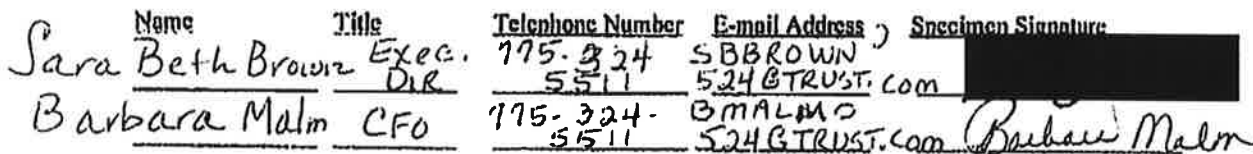 Name Title Telephone Number E-mail Address Specimen Signature
Sara Beth Brown Exec. 775-324 SBBROWN
DIR 5511 524GTRUST.com
Barbara Malm CFO 775-324- BMALM@
5511 524GTRUST.com Barbara Malm